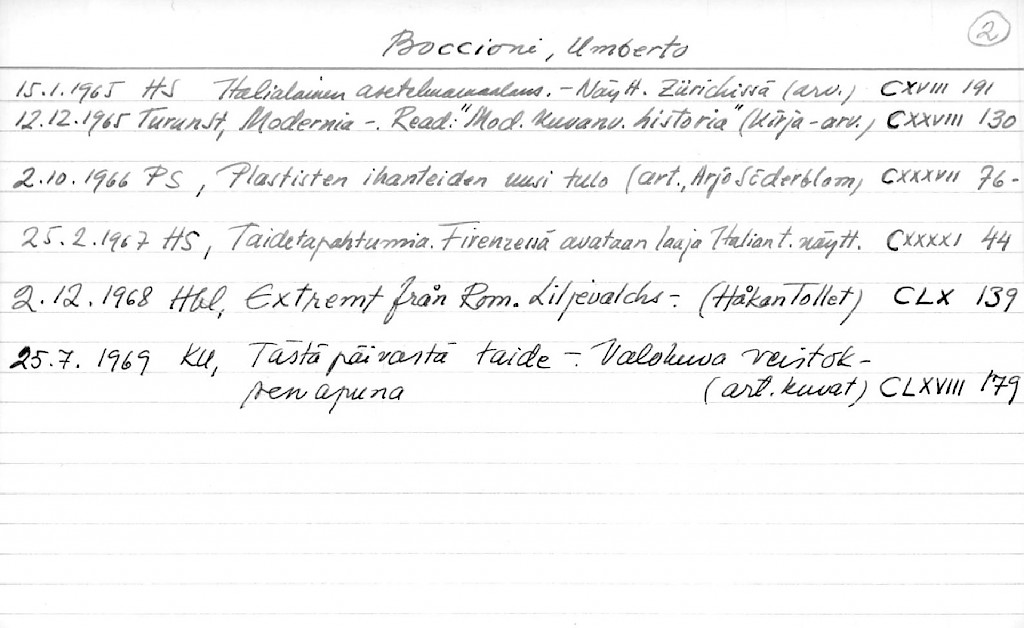 2
Boccioni, Umberto
15.1.1965 HS Italialainen asetelmamaalaus. - Näytt. Zürichissä (arv.) CXVIII 191
12.12.1965 TurunSt, Modernia -. Read: "Mod. kuvanv. historia" (Kirja-arv.) CXXVIII 130
2.10.1966 PS, Plastisten ihanteiden uusi tulo (art., Arjo Söderblom) CXXXVII 76-
25.2.1967 HS, Taidetapahtumia. Firenzessä avataan laaja Italian t. näytt. CXXXXI 44
2.12.1968 Hbl, Extremt från Rom. Liljevalchs -. (Håkan Tollet) CLX 139
25.7.1969 KU, Tästä päivästä taide -. Valokuva veistok-
sen apuna (art. kuvat) CLXVIII 179